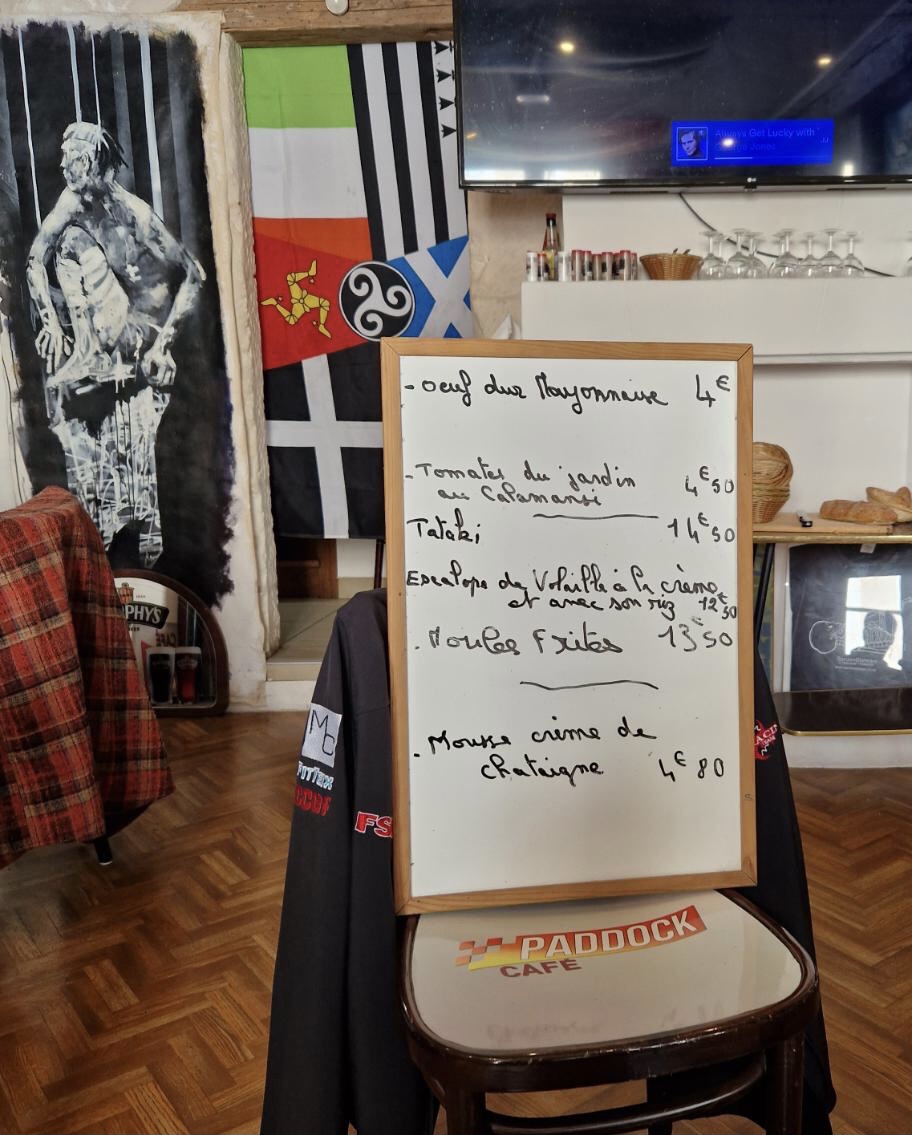 Always Get Lucky with
Jones
LG
- Oeuf dur Mayonnaise 4€
- Tomates du jardin
au Calamansi 4€50
Tataki 14€50
Escalope de Volaille à la crème
et avec son riz 12€50
. Moules Frites 13€50
. Mousse crème de
chataigne 4€80
PHYS
MC
CCOF
FS
PADDOCK
CAFÉ